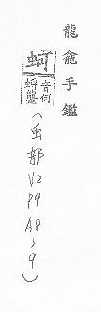 龍龕手鑑
蚵
音
蚵
(虫部 V2 P9 A8 9)